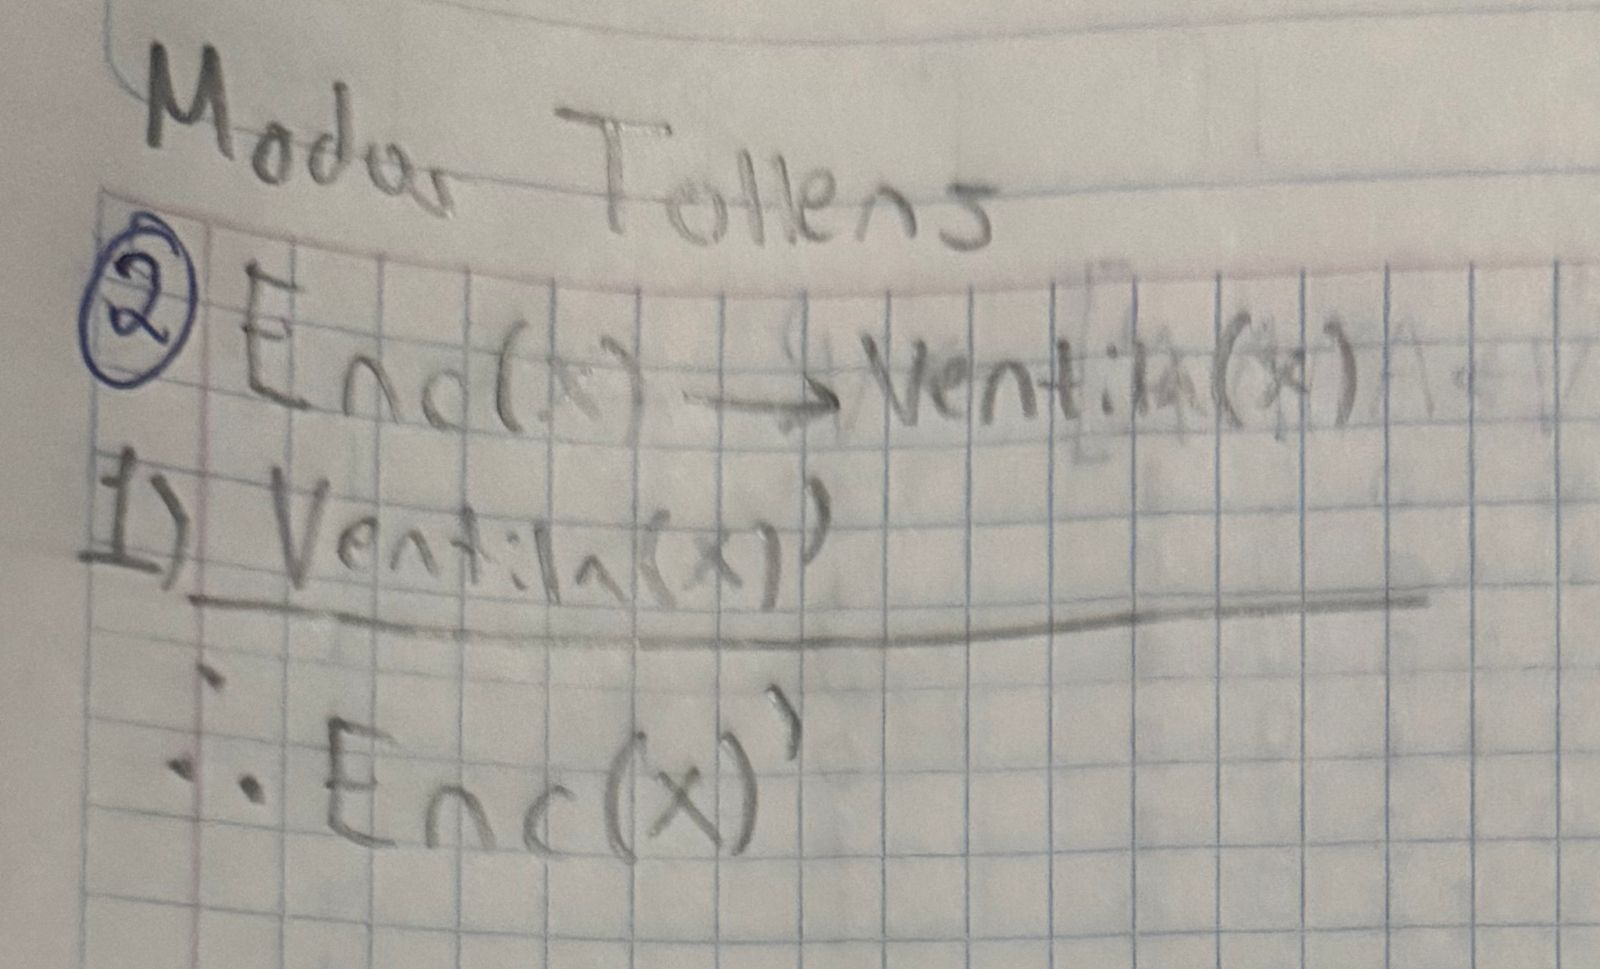 Modus Tollens
② Enc(x) → Ventiln(x)
1) Ventiln(x)'
∴ Enc(x)'